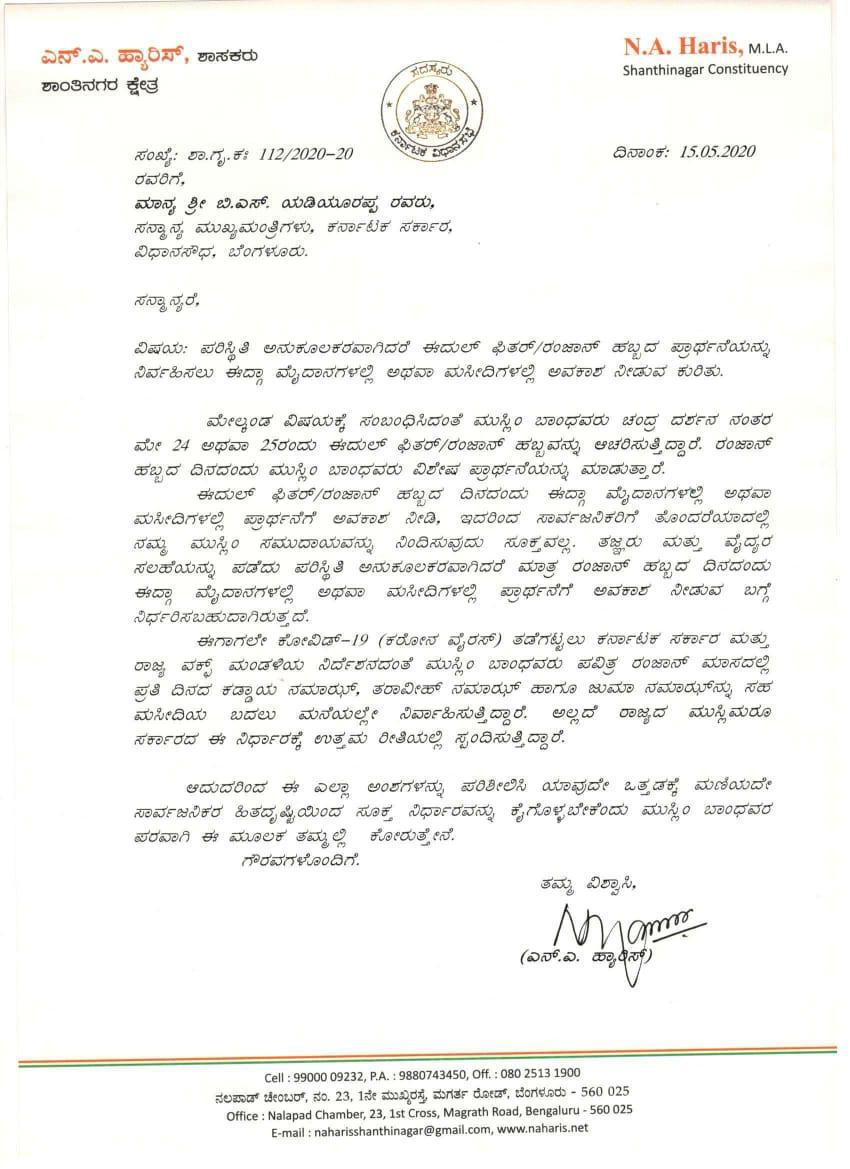 ಎನ್.ಎ. ಹ್ಯಾರಿಸ್, ಶಾಸಕರು
ಶಾಂತಿನಗರ ಕ್ಷೇತ್ರ
N.A. Haris, M.L.A.
Shanthinagar Constituency
ಸದಸ್ಯರು
ಕರ್ನಾಟಕ ವಿಧಾನಸಭೆ
ಸಂಖ್ಯೆ: ಶಾ.ಗೃ.ಕಃ 112/2020-20
ದಿನಾಂಕ: 15.05.2020
ರವರಿಗೆ,
ಮಾನ್ಯ ಶ್ರೀ ಬಿ.ಎಸ್. ಯಡಿಯೂರಪ್ಪ ರವರು,
ಸನ್ಮಾನ್ಯ ಮುಖ್ಯಮಂತ್ರಿಗಳು, ಕರ್ನಾಟಕ ಸರ್ಕಾರ,
ವಿಧಾನಸೌಧ, ಬೆಂಗಳೂರು.
ಸನ್ಮಾನ್ಯರೆ,
ವಿಷಯ: ಪರಿಸ್ಥಿತಿ ಅನುಕೂಲಕರವಾಗಿದರೆ ಈದುಲ್ ಫಿತರ್/ರಂಜಾನ್ ಹಬ್ಬದ ಪ್ರಾರ್ಥನೆಯನ್ನು
ನಿರ್ವಹಿಸಲು ಈದ್ಗಾ ಮೈದಾನಗಳಲ್ಲಿ ಅಥವಾ ಮಸೀದಿಗಳಲ್ಲಿ ಅವಕಾಶ ನೀಡುವ ಕುರಿತು.
ಮೇಲ್ಕಂಡ ವಿಷಯಕ್ಕೆ ಸಂಬಂಧಿಸಿದಂತೆ ಮುಸ್ಲಿಂ ಬಾಂಧವರು ಚಂದ್ರ ದರ್ಶನ ನಂತರ
ಮೇ 24 ಅಥವಾ 25ರಂದು ಈದುಲ್ ಫಿತರ್/ರಂಜಾನ್ ಹಬ್ಬವನ್ನು ಆಚರಿಸುತ್ತಿದ್ದಾರೆ. ರಂಜಾನ್
ಹಬ್ಬದ ದಿನದಂದು ಮುಸ್ಲಿಂ ಬಾಂಧವರು ವಿಶೇಷ ಪ್ರಾರ್ಥನೆಯನ್ನು ಮಾಡುತ್ತಾರೆ.
ಈದುಲ್ ಫಿತರ್/ರಂಜಾನ್ ಹಬ್ಬದ ದಿನದಂದು ಈದ್ಗಾ ಮೈದಾನಗಳಲ್ಲಿ ಅಥವಾ
ಮಸೀದಿಗಳಲ್ಲಿ ಪ್ರಾರ್ಥನೆಗೆ ಅವಕಾಶ ನೀಡಿ, ಇದರಿಂದ ಸಾರ್ವಜನಿಕರಿಗೆ ತೊಂದರೆಯಾದಲ್ಲಿ
ನಮ್ಮ ಮುಸ್ಲಿಂ ಸಮುದಾಯವನ್ನು ನಿಂದಿಸುವುದು ಸೂಕ್ತವಲ್ಲ. ತಜ್ಞರು ಮತ್ತು ವೈದ್ಯರ
ಸಲಹೆಯನ್ನು ಪಡೆದು ಪರಿಸ್ಥಿತಿ ಅನುಕೂಲಕರವಾಗಿದರೆ ಮಾತ್ರ ರಂಜಾನ್ ಹಬ್ಬದ ದಿನದಂದು
ಈದ್ಗಾ ಮೈದಾನಗಳಲ್ಲಿ ಅಥವಾ ಮಸೀದಿಗಳಲ್ಲಿ ಪ್ರಾರ್ಥನೆಗೆ ಅವಕಾಶ ನೀಡುವ ಬಗ್ಗೆ
ನಿರ್ಧರಿಸಬಹುದಾಗಿರುತ್ತದೆ.
ಈಗಾಗಲೇ ಕೋವಿಡ್-19 (ಕರೋನ ವೈರಸ್) ತಡೆಗಟ್ಟಲು ಕರ್ನಾಟಕ ಸರ್ಕಾರ ಮತ್ತು
ರಾಜ್ಯ ವಕ್ಫ್ ಮಂಡಳಿಯ ನಿರ್ದೇಶನದಂತೆ ಮುಸ್ಲಿಂ ಬಾಂಧವರು ಪವಿತ್ರ ರಂಜಾನ್ ಮಾಸದಲ್ಲಿ
ಪ್ರತಿ ದಿನದ ಕಡ್ಡಾಯ ನಮಾಝ್, ತರಾವೀಹ್ ನಮಾಝ್ ಹಾಗೂ ಜುಮಾ ನಮಾಝ್‌ನ್ನು ಸಹ
ಮಸೀದಿಯ ಬದಲು ಮನೆಯಲ್ಲೇ ನಿರ್ವಾಹಿಸುತ್ತಿದ್ದಾರೆ. ಅಲ್ಲದೆ ರಾಜ್ಯದ ಮುಸ್ಲಿಮರೂ
ಸರ್ಕಾರದ ಈ ನಿರ್ಧಾರಕ್ಕೆ ಉತ್ತಮ ರೀತಿಯಲ್ಲಿ ಸ್ಪಂದಿಸುತ್ತಿದ್ದಾರೆ.
ಆದುದರಿಂದ ಈ ಎಲ್ಲಾ ಅಂಶಗಳನ್ನು ಪರಿಶೀಲಿಸಿ ಯಾವುದೇ ಒತ್ತಡಕ್ಕೆ ಮಣಿಯದೇ
ಸಾರ್ವಜನಿಕರ ಹಿತದೃಷ್ಟಿಯಿಂದ ಸೂಕ್ತ ನಿರ್ಧಾರವನ್ನು ಕೈಗೊಳ್ಳಬೇಕೆಂದು ಮುಸ್ಲಿಂ ಬಾಂಧವರ
ಪರವಾಗಿ ಈ ಮೂಲಕ ತಮ್ಮಲ್ಲಿ ಕೋರುತ್ತೇನೆ.
ಗೌರವಗಳೊಂದಿಗೆ.
ತಮ್ಮ ವಿಶ್ವಾಸಿ,
(ಎನ್.ಎ. ಹ್ಯಾರಿಸ್)
Cell : 99000 09232, P.A. : 9880743450, Off. : 080 2513 1900
ನಲಪಾಡ್ ಚೇಂಬರ್, ನಂ. 23, 1ನೇ ಮುಖ್ಯರಸ್ತೆ, ಮಗರ್ತ ರೋಡ್, ಬೆಂಗಳೂರು - 560 025
Office : Nalapad Chamber, 23, 1st Cross, Magrath Road, Bengaluru - 560 025
E-mail : naharisshanthinagar@gmail.com, www.naharis.net